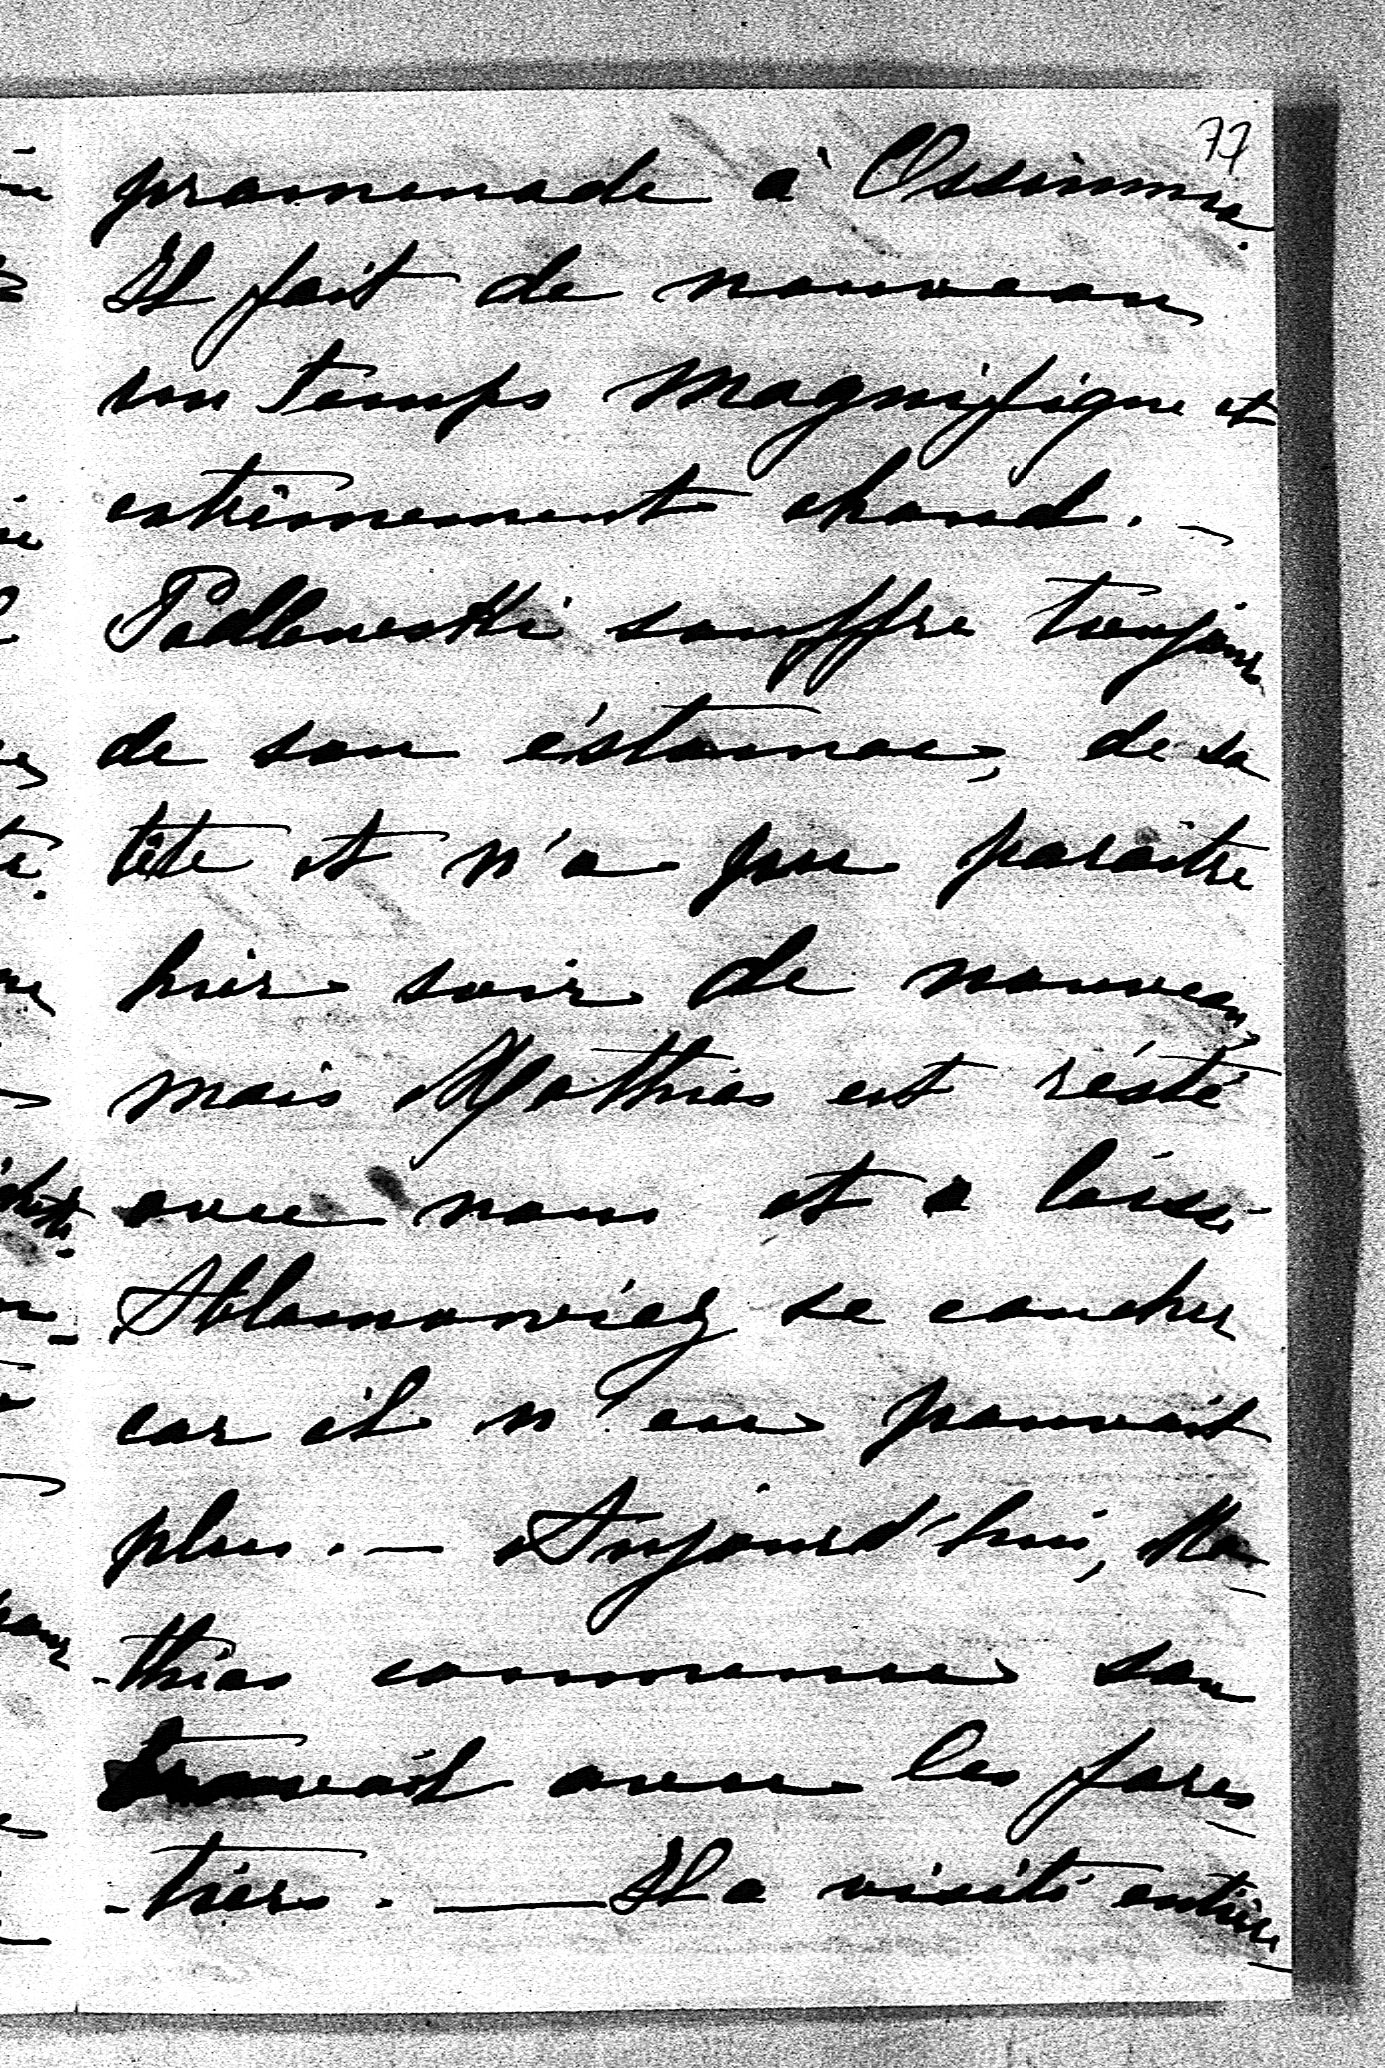 77
promenade à Ossinnia.
Il fait de nouveau
un temps magnifique et
extrêmement chaud. —
Podlewski souffre toujours
de son éstomac, de sa
tête et n'a pu paraître
hier soir de nouveau
mais Mathias est résté
avec nous et a laissé
se coucher
car il n'en pouvait
plus. — Aujourd'hui, Ma-
-thias commence son
travail avec les fores-
-tiers. — Il a visité entière-